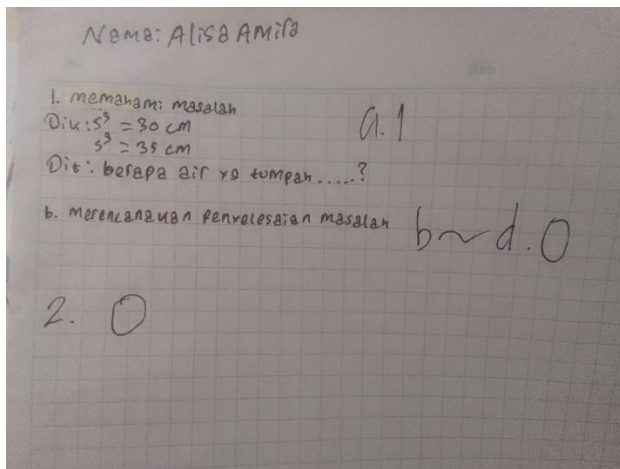 Nama: Alisa Amira
1. memahami masalah
a. 1
Dik: s³ = 30 cm
s³ = 35 cm
Dit: berapa air yg tumpah.....?
b. merencanakan Penyelesaian masalah
b~d. 0
2. 0